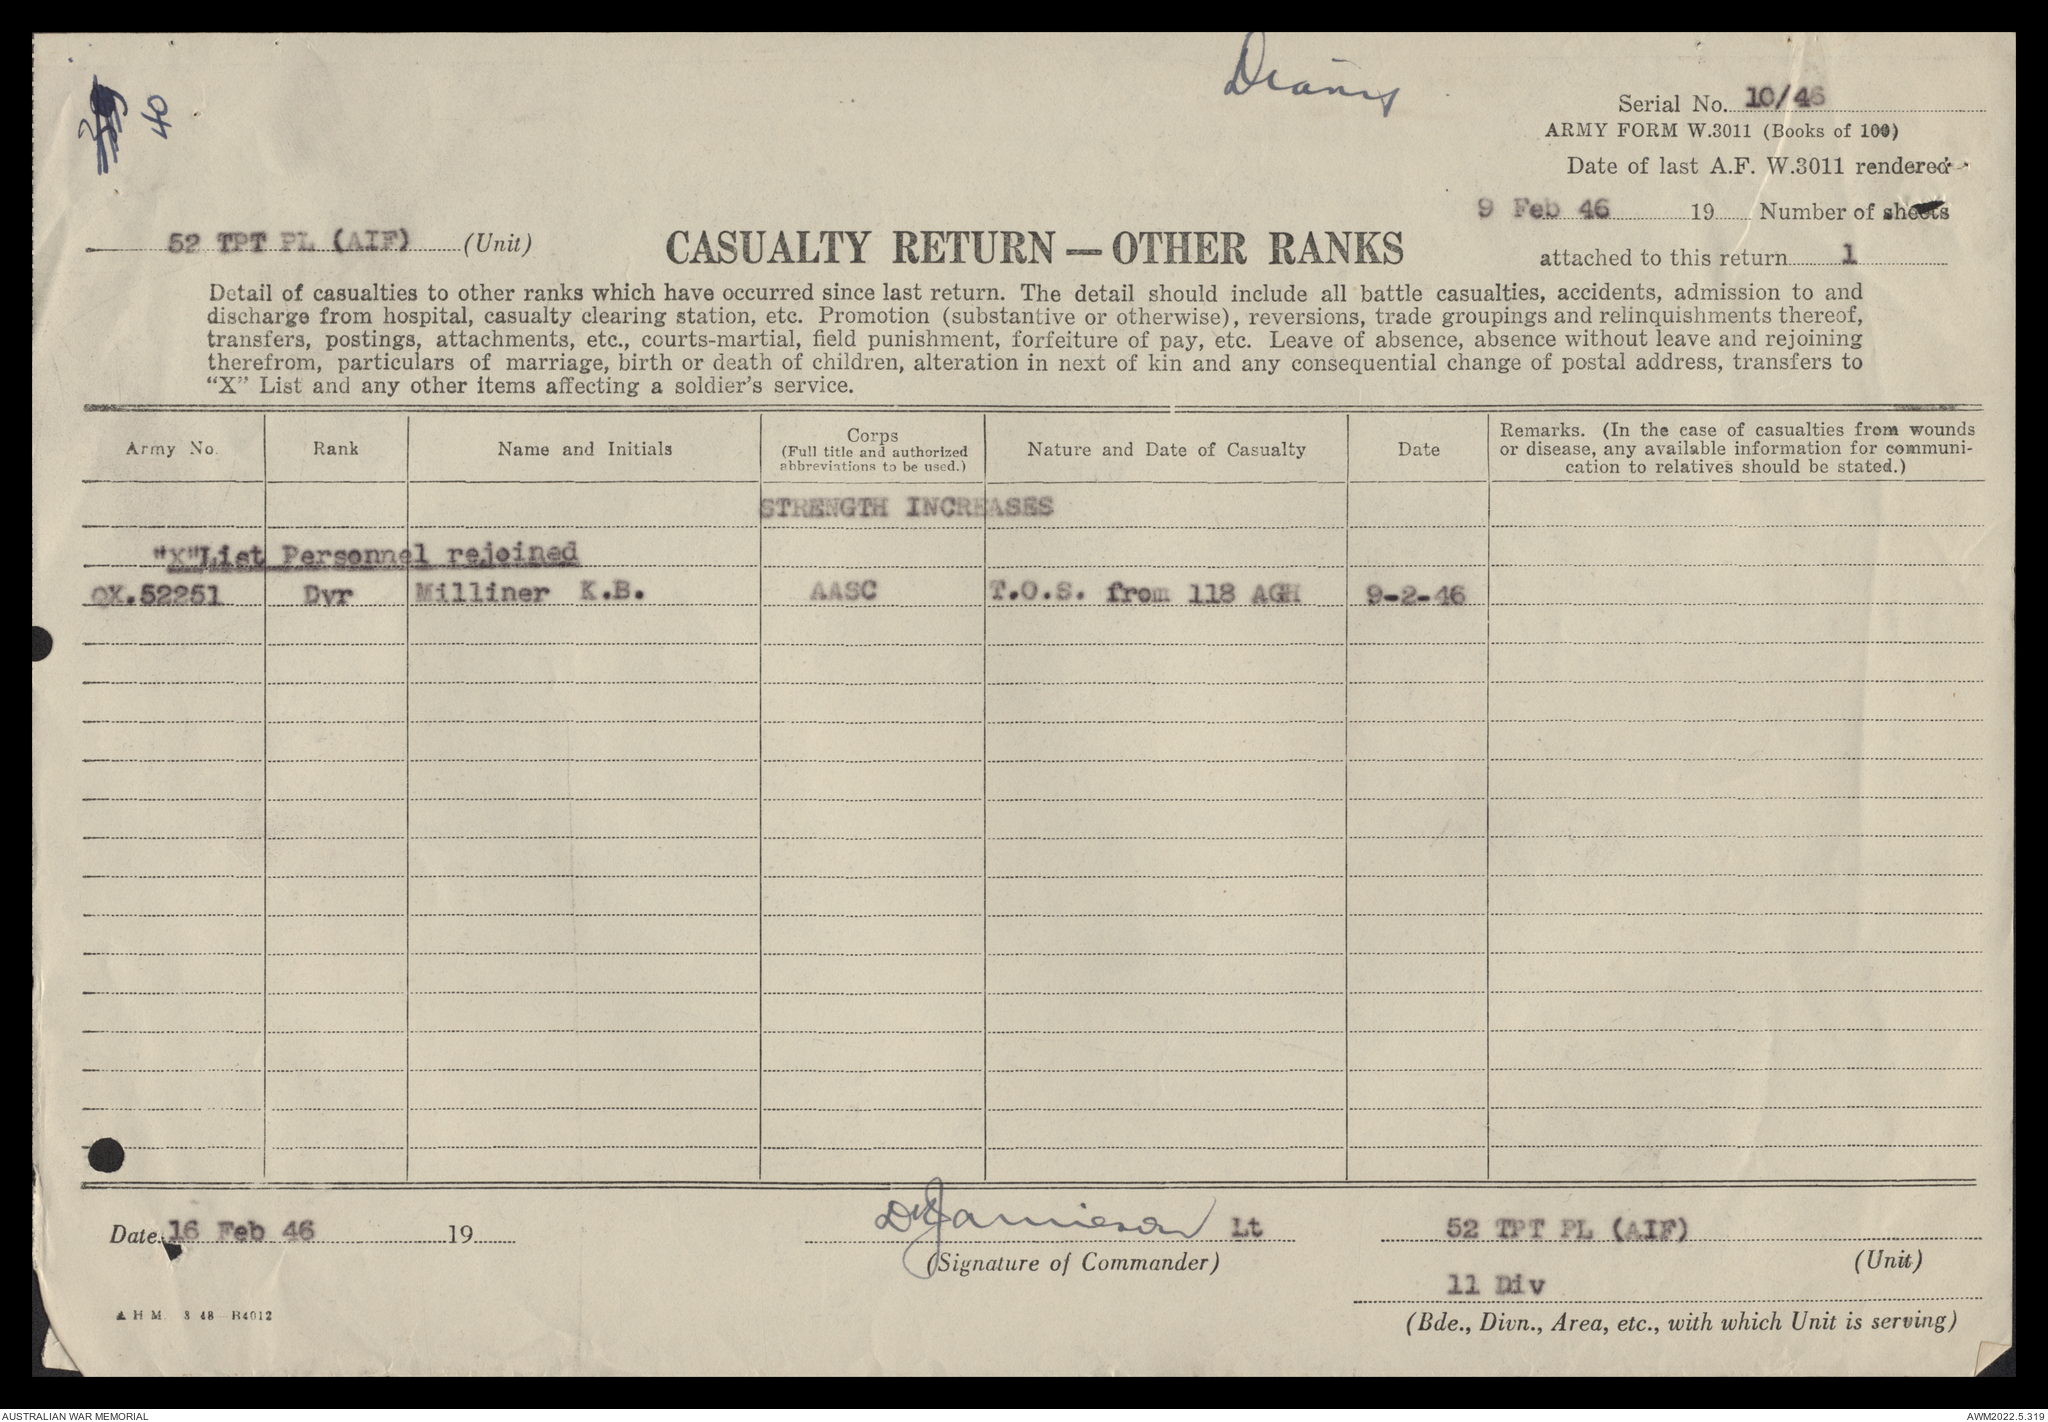 Diary
40
Serial No. 10/46
ARMY FORM W.3011 (Books of 100)
Date of last A.F. W.3011 rendered
9 Feb 46 19 Number of sheets
attached to this return 1
52 TPT PL (AIF) (Unit)
CASUALTY RETURN — OTHER RANKS
Detail of casualties to other ranks which have occurred since last return. The detail should include all battle casualties, accidents, admission to and
discharge from hospital, casualty clearing station, etc. Promotion (substantive or otherwise), reversions, trade groupings and relinquishments thereof,
transfers, postings, attachments, etc., courts-martial, field punishment, forfeiture of pay, etc. Leave of absence, absence without leave and rejoining
therefrom, particulars of marriage, birth or death of children, alteration in next of kin and any consequential change of postal address, transfers to
“X” List and any other items affecting a soldier’s service.
Army No. Rank Name and Initials Corps (Full title and authorized abbreviations to be used.) Nature and Date of Casualty Date Remarks. (In the case of casualties from wounds or disease, any available information for communi-cation to relatives should be stated.)
STRENGTH INCREASES
"X"List Personnel rejoined
QX.52251 Dvr Milliner K.B. AASC T.O.S. from 118 AGH 9-2-46
Date 16 Feb 46 19
Jamieson Lt
(Signature of Commander)
52 TPT PL (AIF)
(Unit)
11 Div
(Bde., Divn., Area, etc., with which Unit is serving)
A H M 8 43 B4012
AUSTRALIAN WAR MEMORIAL
AWM2022.5.319